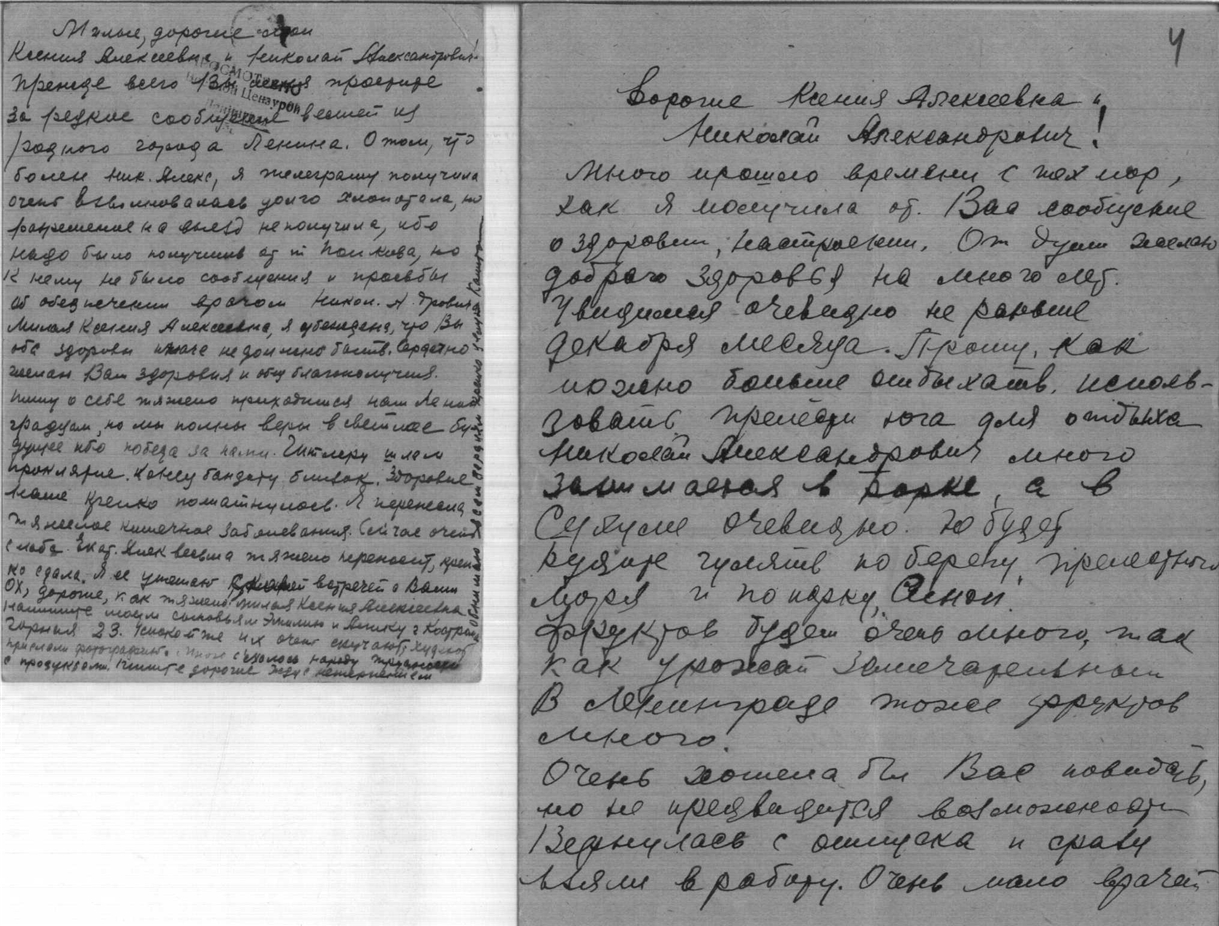 Милые, дорогие мои
Ксения Алексеевна и Николай Александрович!
Прежде всего простите
за редкие сообщение вестей из
родного города Ленина. О том, что
болен Ник. Алекс, я телеграмму получила
очень взволновалась долго хлопотала, но
разрешение на выезд не получила, ибо
надо было получить от но
к нему не было сообщения и просьбы
об обеспечении врачом Никол. А
Милая Ксения Алексеевна, я убеждена, что Вы
оба здоровы иначе не должно быть. Сердечно
желаю Вам здоровия и общ благополучия.
Пишу о себе тяжело приходится нам Ленин
градцам, но мы полны веры в светлое бу
дущее ибо победа за нами. Гитлеру шлем
проклятие. Конец бандиту близок. Здоровие
наше крепко пошатнулось. Я перенесла
тяжелое кишечное заболевания. Сейчас очень
слаба. Екат. Алек весьма тяжело переносит, креп
ко сдала. Я ее утешаю встречей с Вами
Ох, дорогие, как тяжело. Милая Ксения Алексеевна
напишите моим сыновьям и г Кострома
23. их очень скучают,
прислали фотографию. народу
с продуктами. Пишите дорогие жду с нетерпением
Просмотрено
Военной Цензурой
4
Дорогие Ксения Алексеевна и
Николай Александрович!
Много прошло времени с тех пор,
как я получила от Вас сообщение
о здоровии, настроении. От души желаю
доброго здоровья на много лет.
Увидимся очевидно не раньше
декабря месяца. Прошу, как
можно больше отдыхать, исполь-
зовать прелести юга для отдыха
Николай Александрович много
занимается в Горке, а в
Сухуме очевидно. будет
гулять по берегу прелестного
моря и по парку.
Фруктов будет очень много, так
как урожай замечательный
В Ленинграде тоже фруктов
много.
Очень хотела бы Вас повидать,
но не предвидется возможности
Вернулась с отпуска и сразу
взяли в работу. Очень мало врачей